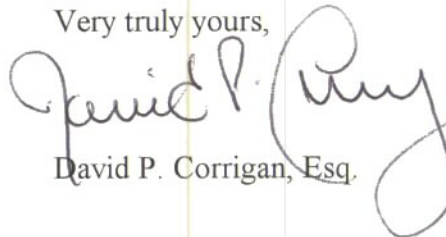 Very truly yours,
David P. Corrigan
David P. Corrigan, Esq.